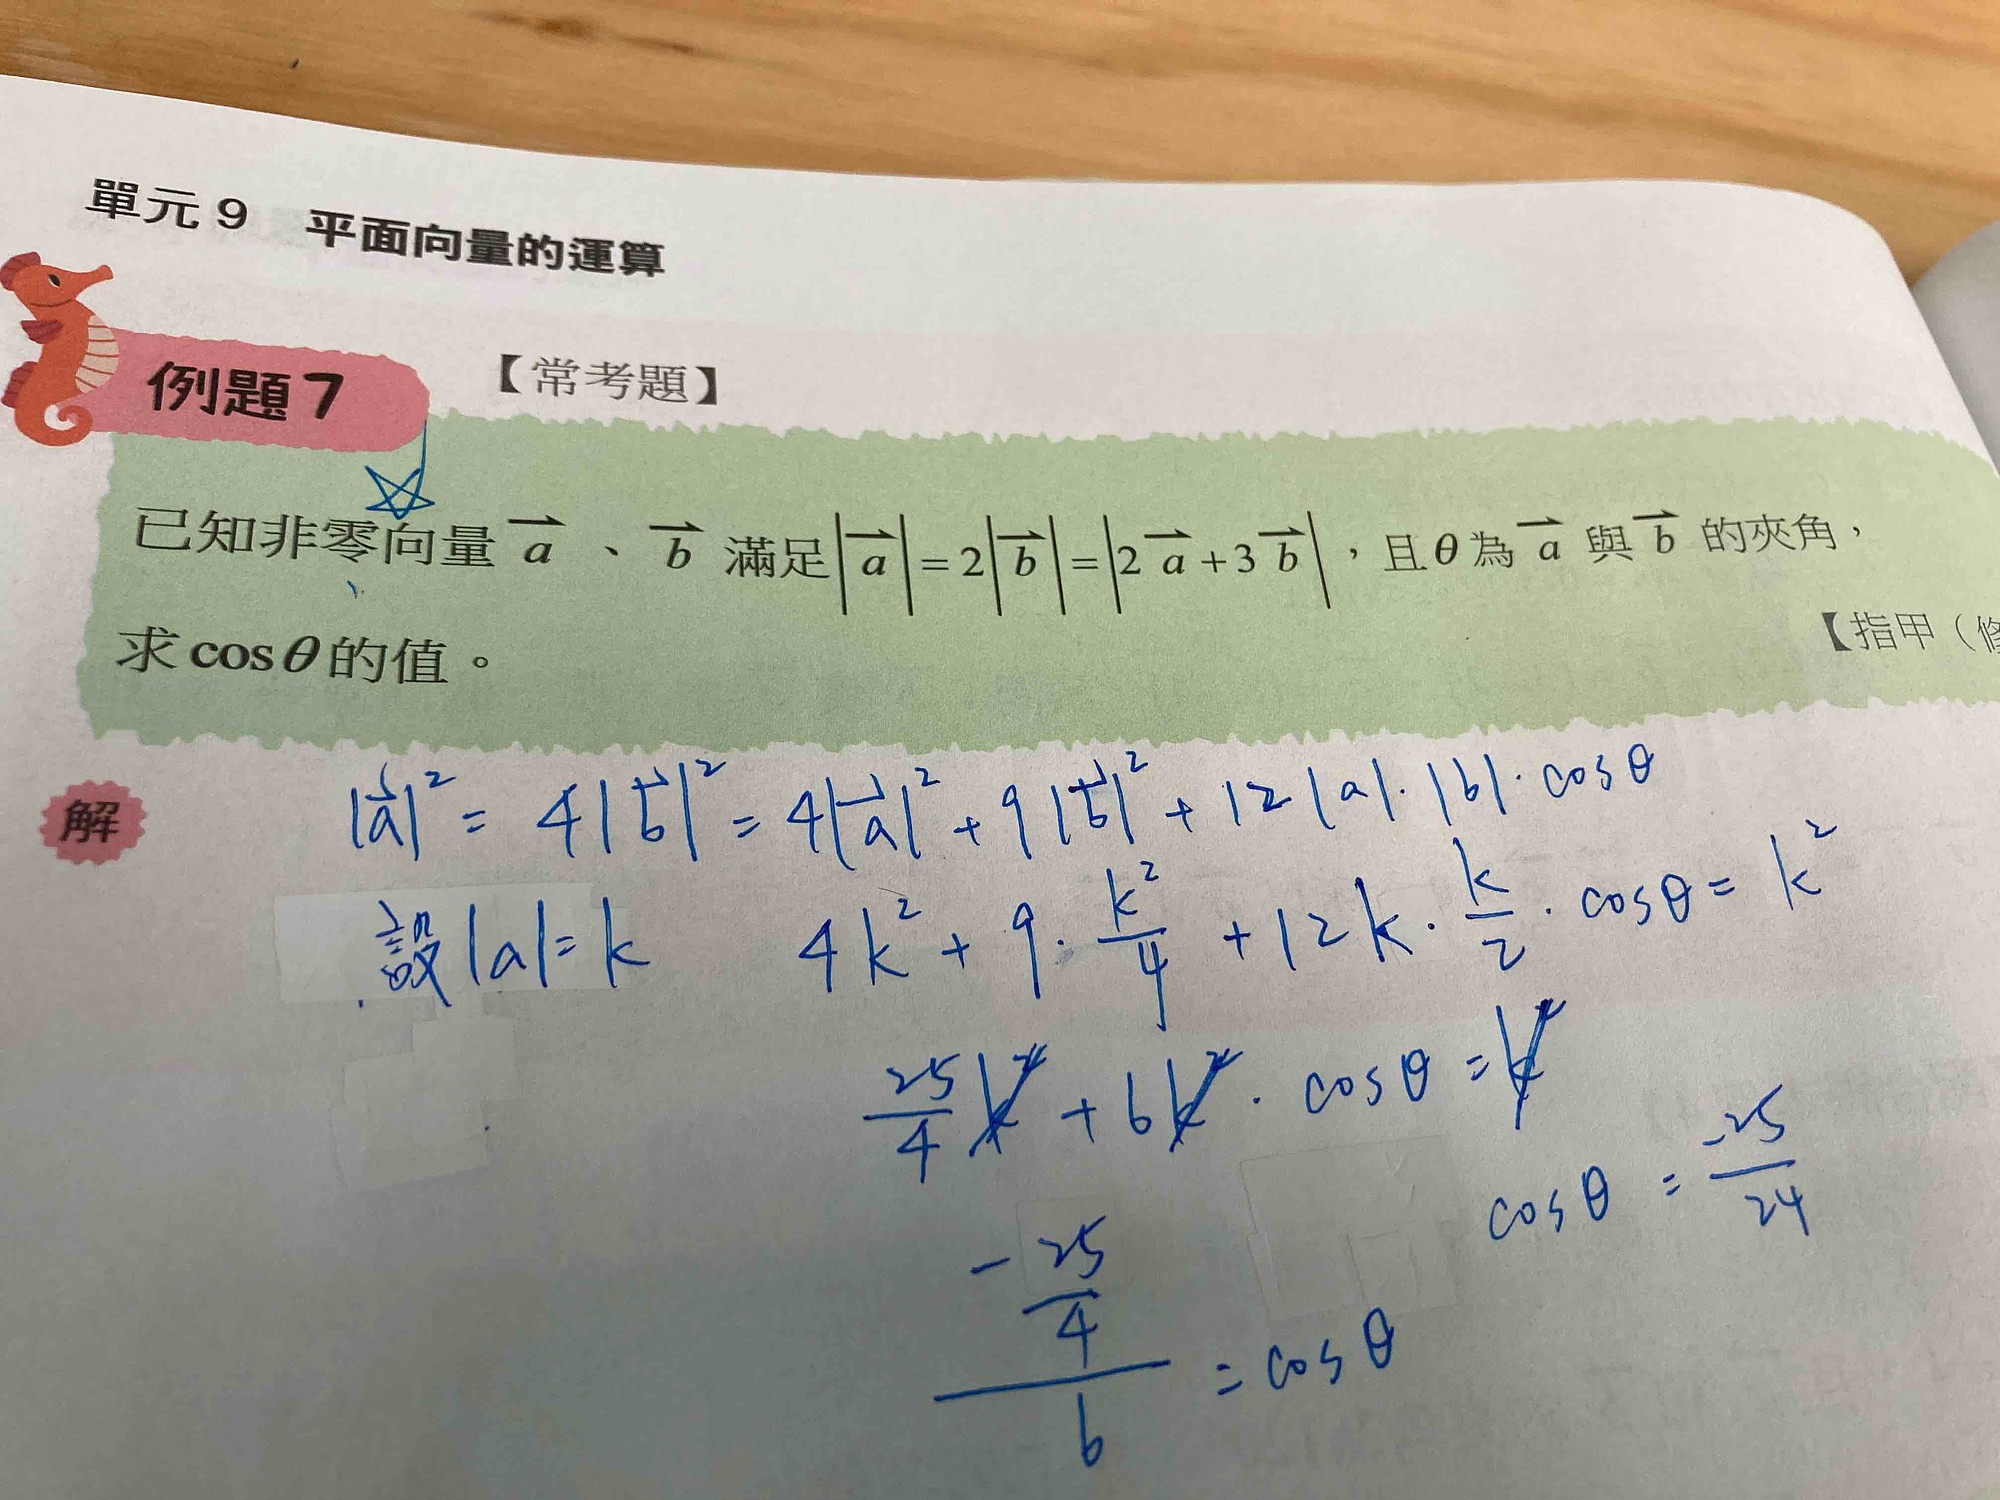 單元9 平面向量的運算
例題7 【常考題】
已知非零向量 $\vec{a}$、$\vec{b}$ 滿足 $|\vec{a}|=2|\vec{b}|=|2\vec{a}+3\vec{b}|$,且θ為 $\vec{a}$ 與 $\vec{b}$ 的夾角,
求cosθ的值。
【指甲(修
解
$|\vec{a}|^2 = 4|\vec{b}|^2 = 4|\vec{a}|^2 + 9|\vec{b}|^2 + 12|a|\cdot|b|\cdot\cos\theta$
設 $|a|=k$ $4k^2 + 9\cdot\frac{k^2}{4} + 12k\cdot\frac{k}{2}\cdot\cos\theta = k^2$
$\frac{25}{4}k^2 + 6k^2\cdot\cos\theta = k^2$
$\cos\theta = \frac{-25}{24}$
$\frac{-\frac{25}{4}}{6} = \cos\theta$